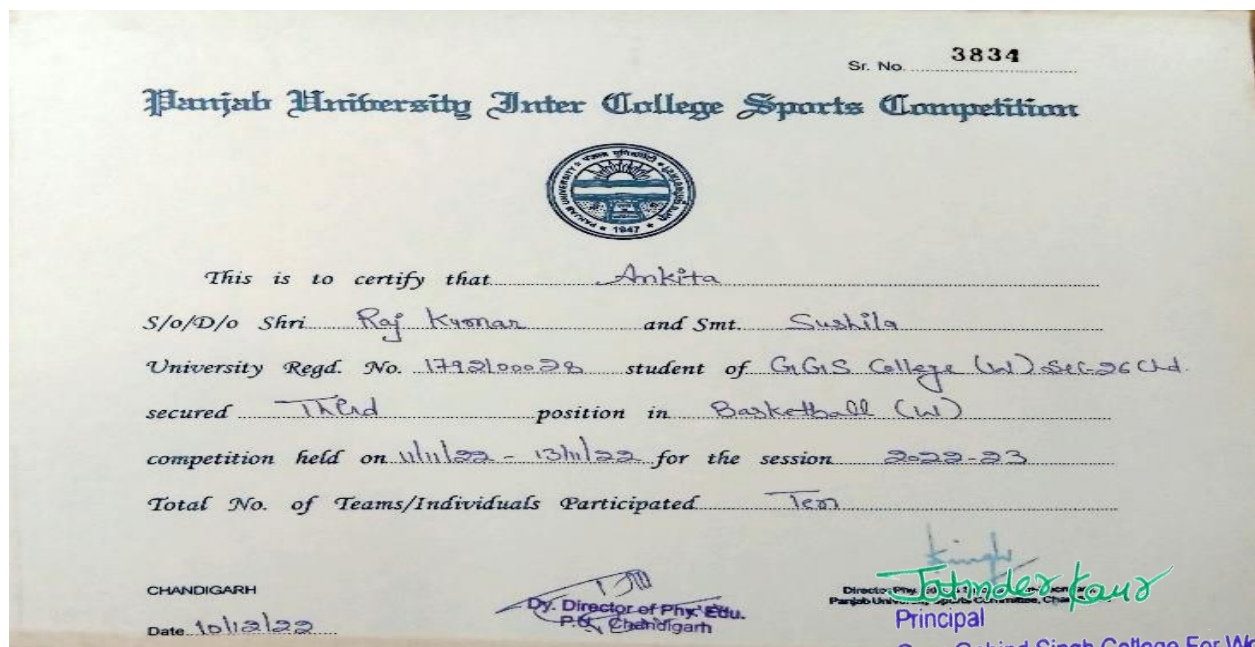 Sr. No. 3834
Panjab University Inter College Sports Competition
PANJAB UNIVERSITY
1947
This is to certify that Ankita
S/o/D/o Shri Raj Kumar and Smt. Sushila
University Regd. No. 1792100028 student of GGS College (W) Sec-26 Chd.
secured Third position in Basketball (W)
competition held on 11/11/22 - 13/11/22 for the session 2022-23
Total No. of Teams/Individuals Participated Ten
CHANDIGARH
Date 10/12/22
Dy. Director of Phy. Edu.
P.U., Chandigarh
Jatinder Kaur
Principal
Singh College For